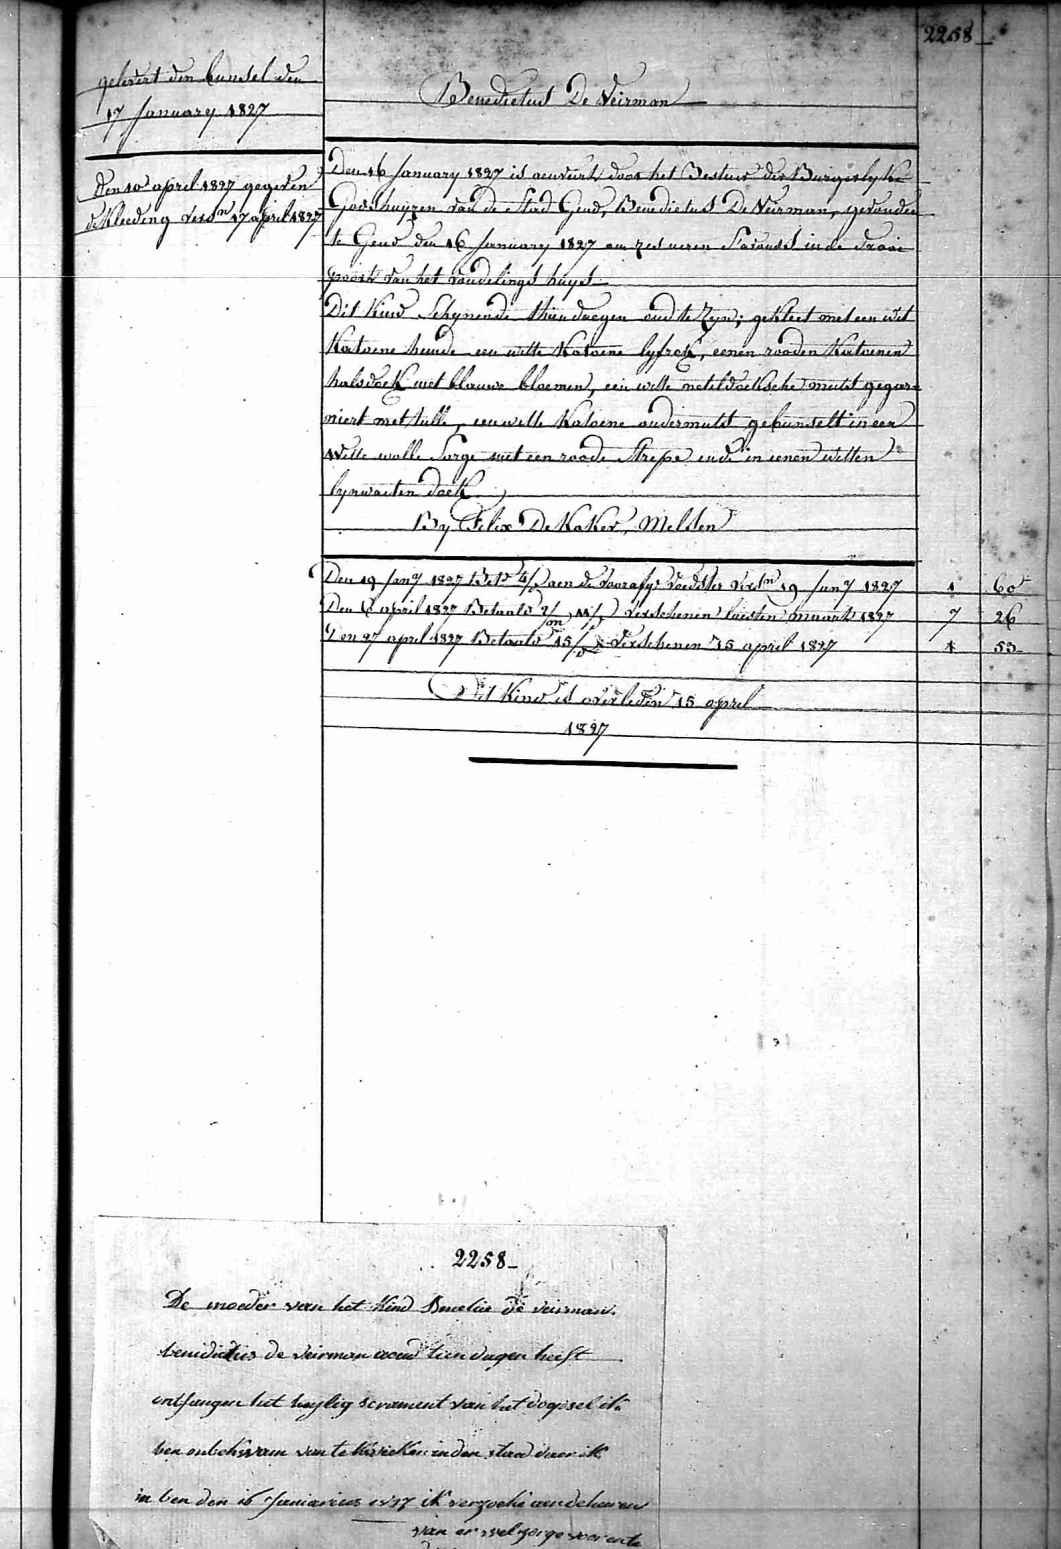 2258
gelevert den bunsel den
17 January 1827
Benedictus De Veirman
Den 10 april 1827 gegeven
de Kleeding versn 17 april 1827
Den 16 January 1827 is aenveirt door het Bestuer der Burgerlyke
Godshuyzen van de Stad Gend, Benedictus De Veirman, gevonden
te Gend den 16 January 1827 om zes ueren S'avonds in de
poorte van het vondelings huys.
Dit Kind Schynende thien daegen oud te Zyn; gekleet met een wit
Katoene hemde een witte Katoene lyfrok, eenen rooden Katoenen
halsdoek met blauwe bloemen, een witte neteldoeksche mutst gegar=
niert met tulle, een witte Katoene ondermutst, gebunselt in een
Witte wolle Sargie met een roode Strepe ende in eenen witten
lynwaeten doek
By Felix De Koker, Melden
Den 19 Jany 1827 Betd aen de voedster versn 19 Jany 1827 1 60
Den 6 april 1827 Betaeld Verschenen laesten maart 1827 7 26
Den 27 april 1827 Betaeld 15/ Verschenen 15 april 1827 1 53
Dit Kind is overleden 15 april
1827
2258
De moeder van het Kind de veirman.
benidictus de Veirman oud tien dagen heeft
ontfangen het heylig scrament van het doopsel ik
ben onbekwam van te kwieken in den staed daer ik
in ben den 16 Januarius 1827 ik verzoeke aen de heeren
van er wel zorge voor